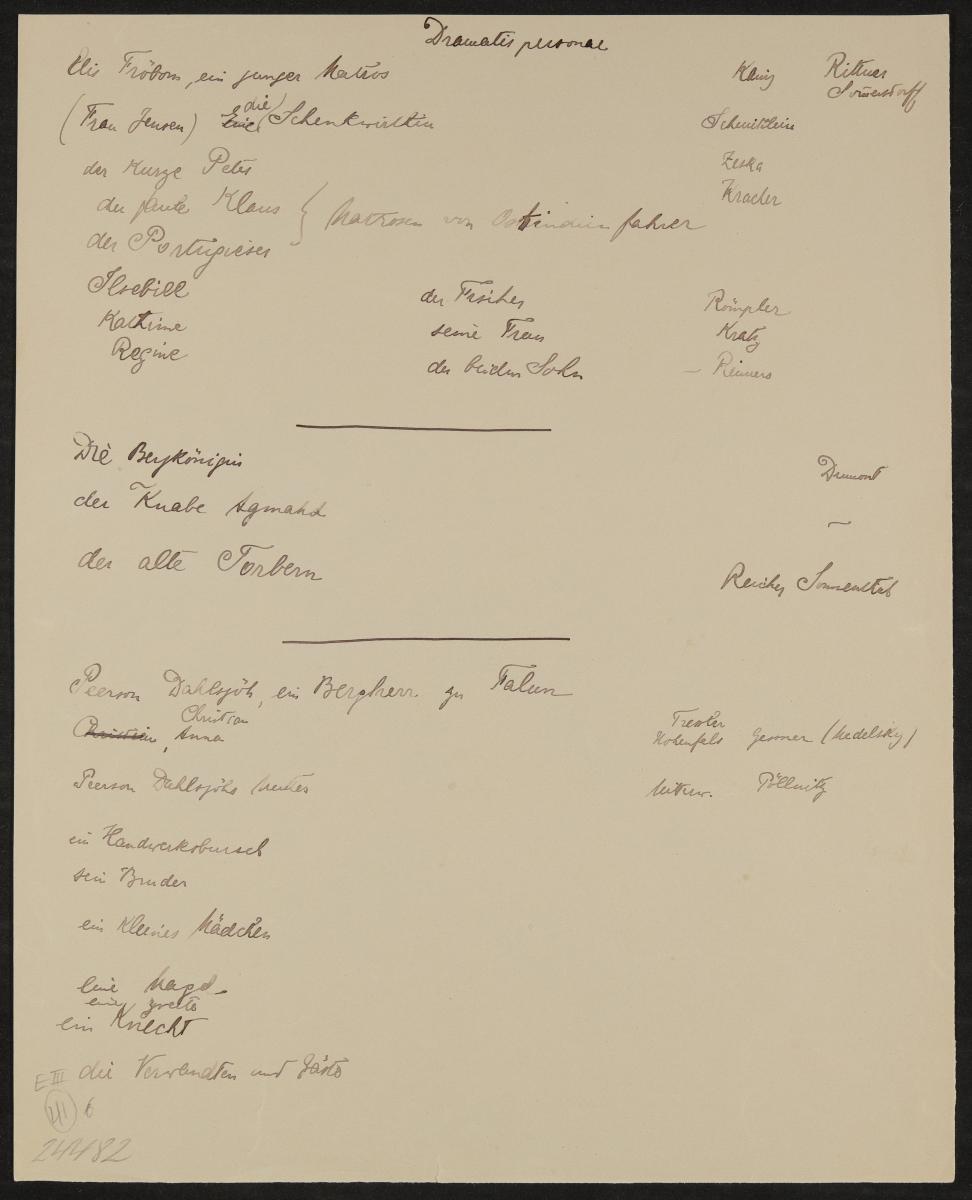 Dramatis personae
Elis Fröbom, ein junger Matros Kainz Rittner
Sommersdorff
(Frau Jensen) Eine (die) Schenkwirthin Schmittlein
der kurze Peter Zeska
der faule Klaus } Matrosen von Ostindienfahrer Kracher
der Portugieser
Ilsebill der Fischer Römpler
Kathrine seine Frau Kratz
Regine der beiden Sohn – Reimers
Die Bergkönigin Dumont
der Knabe Agmahd –
der alte Torbern Reicher Sonnenthal
Peerson Dahlsjöh, ein Bergherr zu Falun
Christian
Christine, Anna Hohenfels Gessner (Medelsky)
Peerson Dahlsjöhs Mutter Mitterw. Pöllnitz
ein Handwerksbursch
sein Bruder
ein kleines Mädchen
eine Magd
eine zweite
ein Knecht
die Verwandten und Gäste
E III
41 6
24482